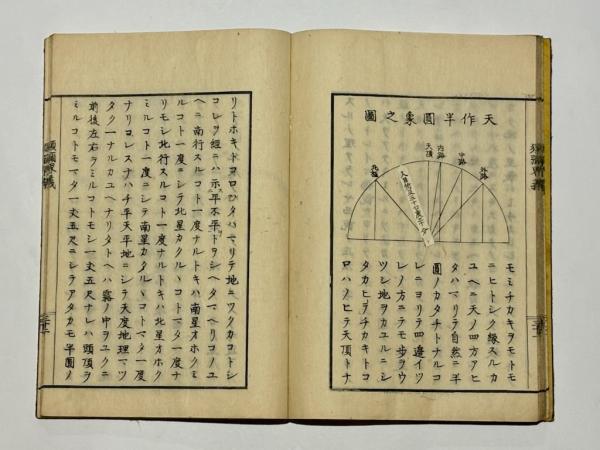 天作半圓象之圖
外路
中路
内路
天頂
北極
モミチカキヲモトモ
ニヒトシク緣スルカ
ユヘニ天ノ四方アヒ
タハマリテ自然ニ半
圓ノカタチトナルコ
レニヨリテ四邉イツ
レノ方ニテモ歩ヲウ
ツシ地ヲカユルニシ
タカヒヲチカキトコ
ロハノヒテ天頂トナ
リトホキトコロハタハマリテ地ニツクカコトシ
コレヲ經ニハ示平不平トヲシヘタマヘリコノユ
ヘニ南行スルコト一度ナルトキハ南星オホクミ
ルコト一度ニシテ北星カクルヽコトマタ一度ナ
リモシ北行スルコト一度ナルトキハ北星オホク
ミルコト一度ニシテ南星カクルヽコトマタ一度
ナリコレスナハチ平天平地ニシテ天度地理マツ
タク一ナルカユヘナリタトヘハ霧ノ中ヲユクニ
前後左右ヲミルコトモシ一丈五尺ナレハ頭頂ヲ
ミルコトモマタ一丈五尺ニシテアタカモ半圓ノ